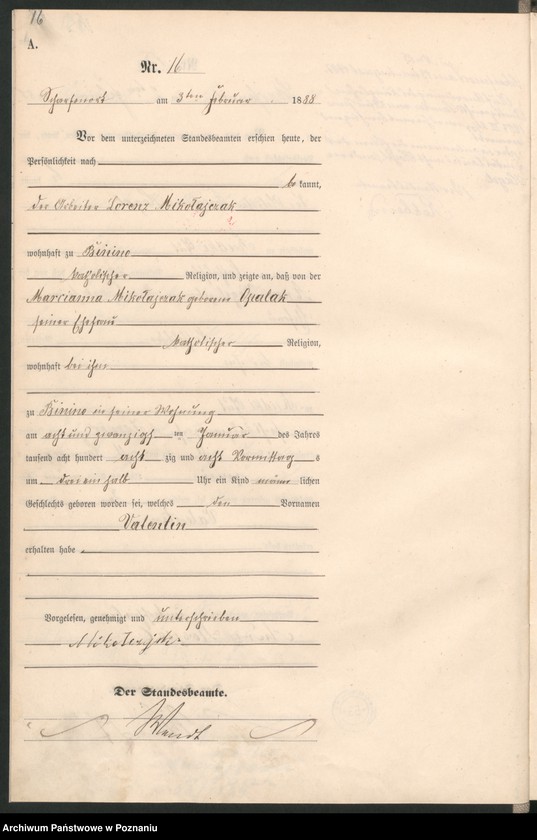 16
A.
Nr. 16
Scharfenort am 3ten Februar 1888
Vor dem unterzeichneten Standesbeamten erschien heute, der
Persönlichkeit nach
bekannt,
der Arbeiter Lorenz Mikołajczak
wohnhaft zu Binino
katholischer Religion, und zeigte an, daß von der
Marcianna Mikołajczak geborene Opalak
seiner Ehefrau
katholischer Religion,
wohnhaft bei ihm
zu Binino in seiner Wohnung
am acht und zwanzigsten Januar des Jahres
tausend acht hundert acht zig und acht Vormittags
um drei ein halb Uhr ein Kind männlichen
Geschlechts geboren worden sei, welches den Vornamen
Valentin
erhalten habe.
Vorgelesen, genehmigt und unterschrieben
Der Standesbeamte.
Wendt
Archiwum Państwowe w Poznaniu